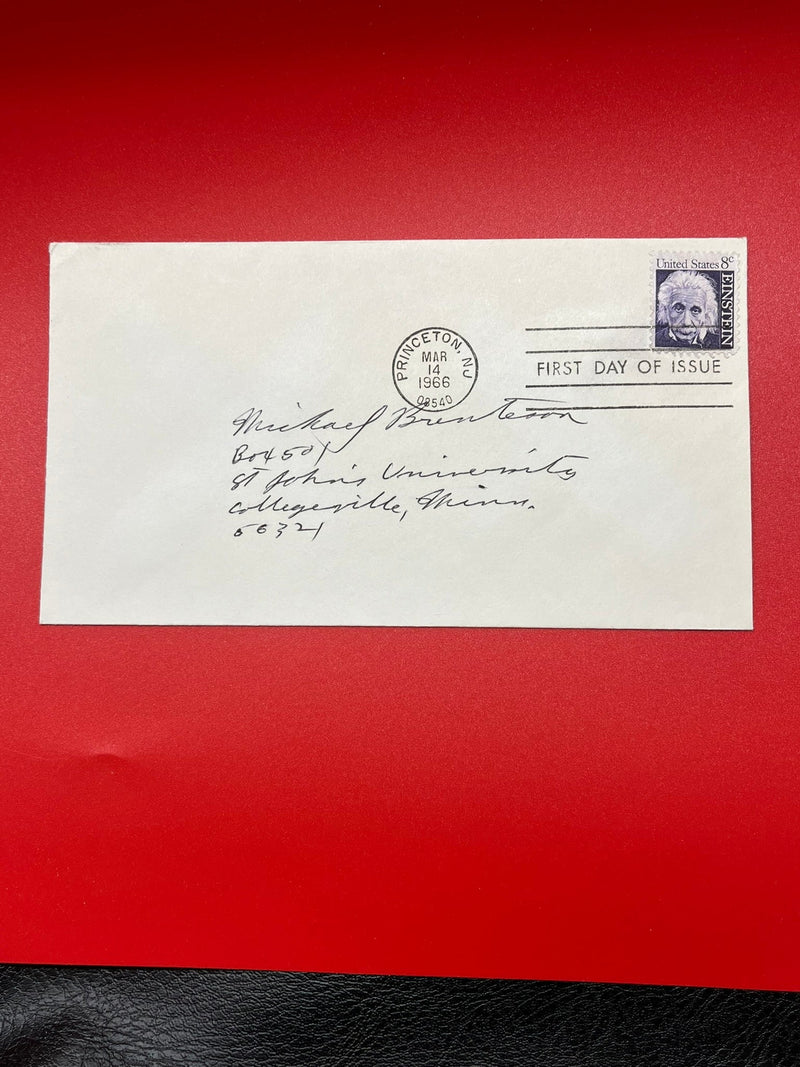 United States 8c
EINSTEIN
PRINCETON, NJ
MAR
14
1966
08540
FIRST DAY OF ISSUE
Michael Brenteson
Box 501
St John's University
Collegeville, Minn.
56321